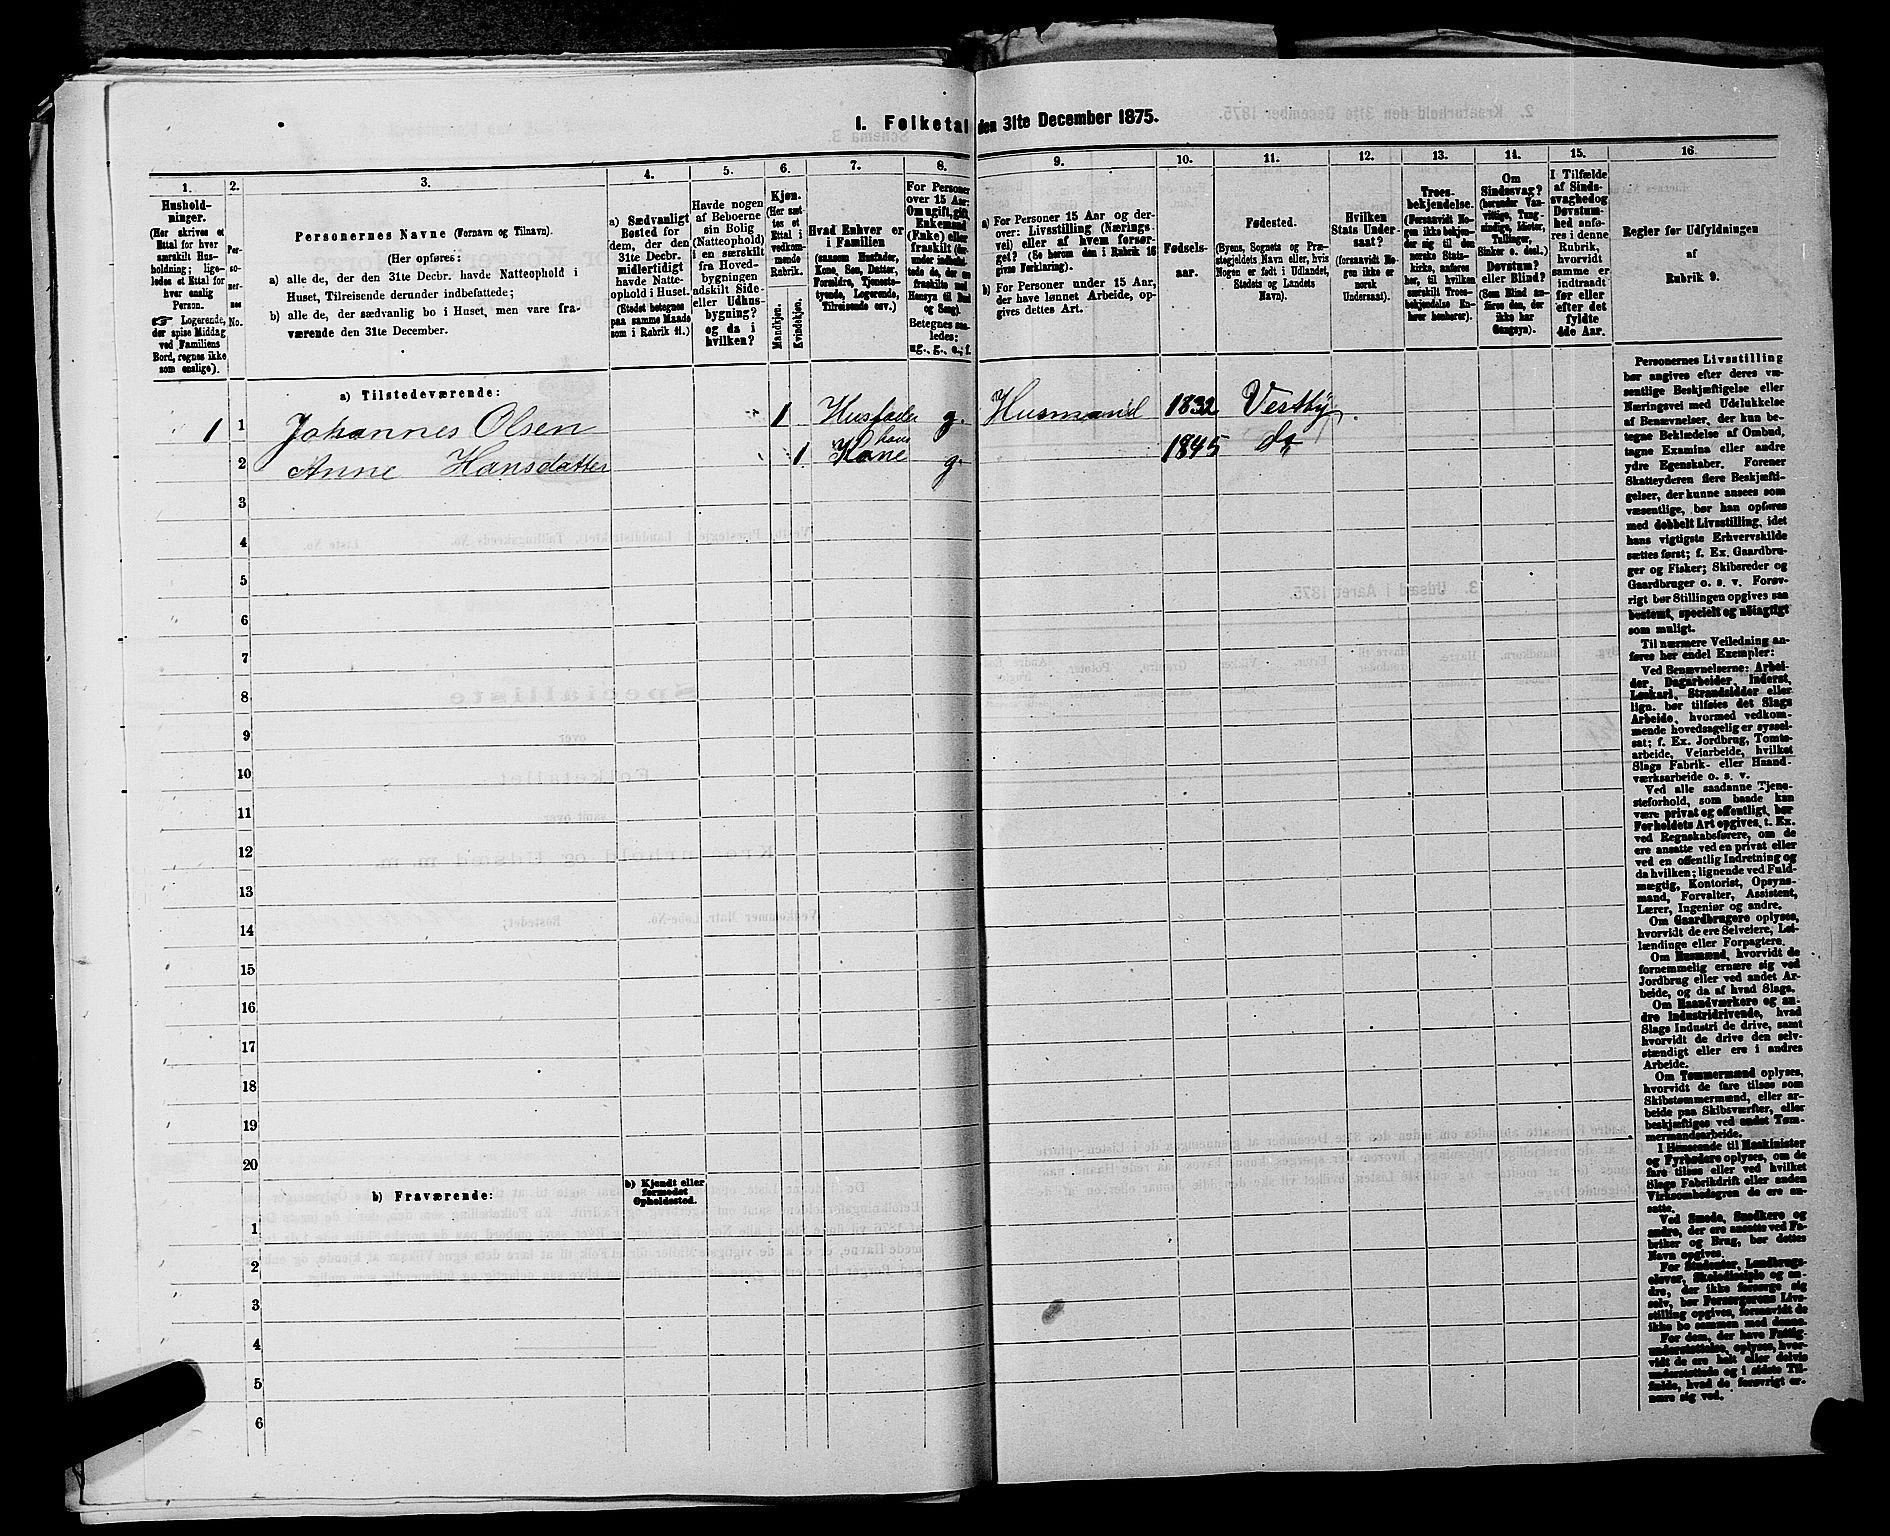 1. Folketal den 31te December 1875.
1. 2. 3. 4. 5. 6. 7. 8. 9. 10. 11. 12. 13. 14. 15. 16.
Hushold-
ninger.
(Her skrives et
Ettal for hver
særskilt Hus-
holdning; lige-
ledes et Ettal for
hver enslig
Person.
☞ Logerende,
der spise Middag
ved Familiens
Bord, regnes ikke
som enslige).
Per-
so-
ner-
nes
No.
Personernes Navne (Fornavn og Tilnavn).
(Her opføres:
a) alle de, der den 31te Decbr. havde Natteophold i
Huset, Tilreisende derunder indbefattede;
b) alle de, der sædvanlig bo i Huset, men vare fra-
værende den 31te December.
a) Sædvanligt
Bosted for
dem, der den
31te Decbr.
midlertidigt
havde Natte-
ophold i Huset.
(Stedet betegnes
paa samme Maade
som i Rubrik 11.)
Havde nogen
af Beboerne
sin Bolig
(Natteophold)
i en særskilt
fra Hoved-
bygningen
adskilt Side-
eller Udhus-
bygning?
og da i
hvilken?
Kjøn.
(Her sæt-
tes et
Ettal i
vedkom-
mende
Rubrik.
Mandkjøn.
Kvindekjøn.
Hvad Enhver er
i Familien
(saasom Husfader,
Kone, Søn, Datter,
Forældre, Tjeneste-
tyende, Logerende,
Tilreisende osv.)
For Personer
over 15 Aar:
Om ugift, gift,
Enkemand
(Enke) eller
fraskilt
Betegnes saa-
ledes:
ug., g., e., f.
a) For Personer 15 Aar og der-
over: Livsstilling (Nærings-
vei) eller af hvem forsør-
get? (Se herom den i Rubrik 16
givne Forklaring).
b) For Personer under 15 Aar,
der have lønnet Arbeide, op-
gives dettes Art.
Fødsels-
aar.
Fødested.
(Byens, Sognets og Præ-
stegjeldets Navn eller, hvis
Nogen er født i Udlandet,
Stedets og Landets
Navn).
Hvilken
Stats Under-
saat?
(forsaavidt No-
gen ikke er
norsk
Undersaat).
Troes-
bekjendelse.
(Forsaavidt No-
gen ikke bekjen-
der sig til den
norske Stats-
kirke, anføres
her, til hvilken
særskilt Troes-
bekjendelse En-
hver henhører).
Om
Sindssvag?
(herunder Van-
vittige, Tung-
sindige, Idioter,
Tullinger,
Sinker o. desl.)
Døvstum?
eller Blind?
(Som Blind an-
føres den, der
ikke har
Gangsyn).
I Tilfælde
af Sinds-
svaghed og
Døvstum-
hed anfø-
res i denne
Rubrik,
hvorvidt
samme er
indtraadt
før eller
efter det
fyldte
4de Aar.
Regler for Udfyldningen
af
Rubrik 9.
a) Tilstedeværende:
1 1 Johannes Olsen 1 Husfader g. Husmand 1832 Vestby
2 Anne Hansdatter 1 hans Kone g. 1845 do
3
4
5
6
7
8
9
10
11
12
13
14
15
16
17
18
19
20
b) Fraværende:
b) Kjendt eller
formodet
Opholdssted.
1
2
3
4
5
6
Personernes Livsstilling
bør angives efter deres væ-
sentlige Beskjæftigelse eller
Næringsvei med Udelukkelse
af Benævnelser, der kun be-
tegne Beklædelse af Ombud,
tagne Examina eller andre
ydre Egenskaber. Forener
Skatteyderen flere Beskjæfti-
gelser, der kunne ansees som
væsentlige, bør han opføres
med dobbelt Livsstilling, idet
hans vigtigste Erhvervskilde
sættes først; f. Ex. Gaardbru-
ger og Fisker; Skibsreder og
Gaardbruger o. s. v. Forøv-
rigt bør Stillingen opgives saa
bestemt, specielt og nöiagtigt
som muligt.
Til nærmere Veiledning an-
føres her endel Exempler:
Ved Benævnelserne: Arbei-
der, Dagarbeider, Inderst,
Løskarl, Strandsidder eller
lign. bør tilføies det Slags
Arbeide, hvormed vedkom-
mende hovedsagelig er syssel-
sat; f. Ex. Jordbrug, Tomte-
arbeide, Veiarbeide, hvilket
Slags Fabrik- eller Haand-
værksarbeide o. s. v.
Ved alle saadanne Tjene-
steforhold, som baade kan
være privat og offentligt, bør
Forholdets Art opgives, t. Ex.
ved Regnskabsførere, om de
ere ansatte ved en privat eller
ved en offentlig Indretning og
da hvilken; lignende ved Fuld-
mægtig, Kontorist, Opsyns-
mand, Forvalter, Assistent,
Lærer, Ingeniør og andre.
Om Gaardbrugere oplyses,
hvorvidt de ere Selveiere, Lei-
lændinge eller Forpagtere.
Om Husmænd, hvorvidt de
fornemmelig ernære sig ved
Jordbrug eller ved andet Ar-
beide, og da af hvad Slags.
Om Haandværkere og an-
dre Industridrivende, hvad
Slags Industri de drive, samt
hvorvidt de drive den selv-
stændigt eller ere i andres
Arbeide.
Om Tømmermænd oplyses,
hvorvidt de fare tilsøs som
Skibstømmermænd, eller ar-
beide paa Skibsværfter, eller
beskjæftiges ved andet Tøm-
mermandsarbeide.
I Henseende til Maskinister
og Fyrbødere oplyses, om de
fare tilsøs eller ved hvilket
Slags Fabrikdrift eller anden
Virksomhedsgren de ere an-
satte.
Ved Smede, Snedkere og
andre, der ere ansatte ved Fa-
briker og Brug, bør dettes
Navn opgives.
For Studenter, Landbrugs-
elever, Skoledisciple og an-
dre, der ikke forsørge sig
selv, bør Forsørgerens Livs-
stilling opgives, forsaavidt de
ikke bo sammen med denne.
For dem, der have Fattig-
understøttelse, oplyses, hvor-
vidt de ere helt eller delvis
understøttede og i sidste Til-
fælde, hvad de forøvrigt er-
nære sig ved.